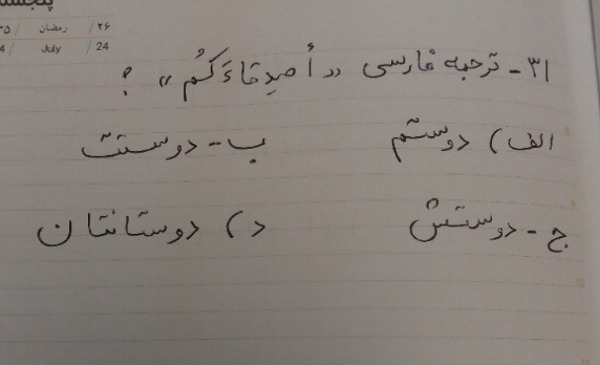 پنجشنبه
۲۶ / رمضان / ۳۵
24 / July / 4
۳۱- ترجمه فارسی «أصدِقاءَکُم» ؟
الف) دوستم ب- دوستت
ج- دوستش د) دوستانتان